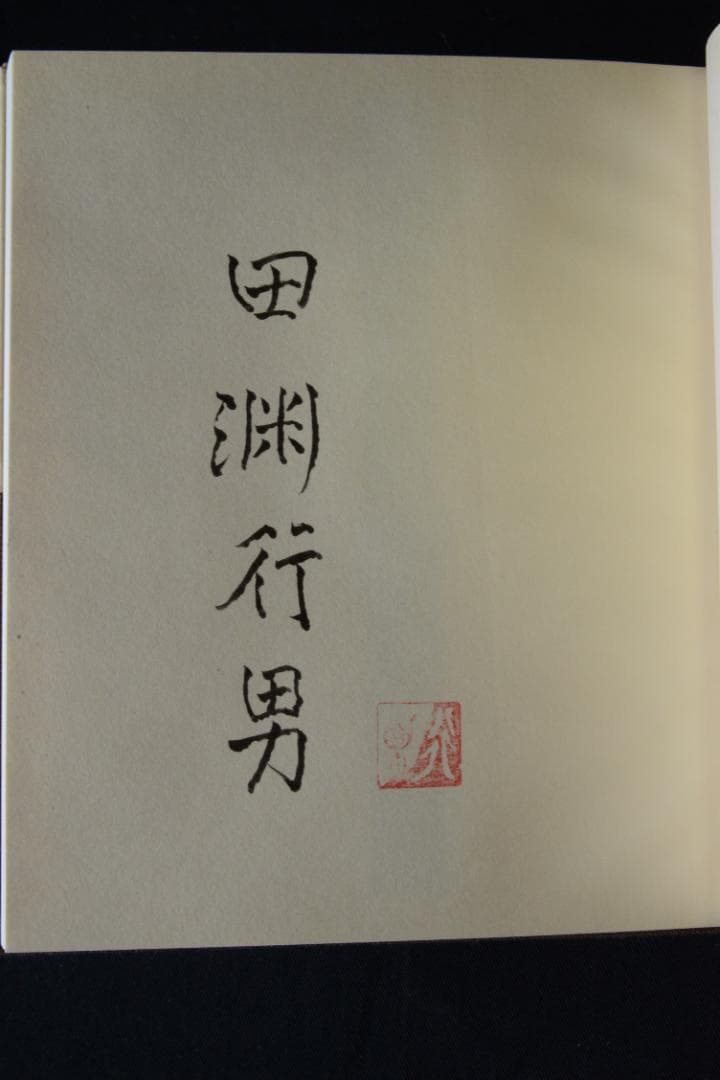 田渊行男